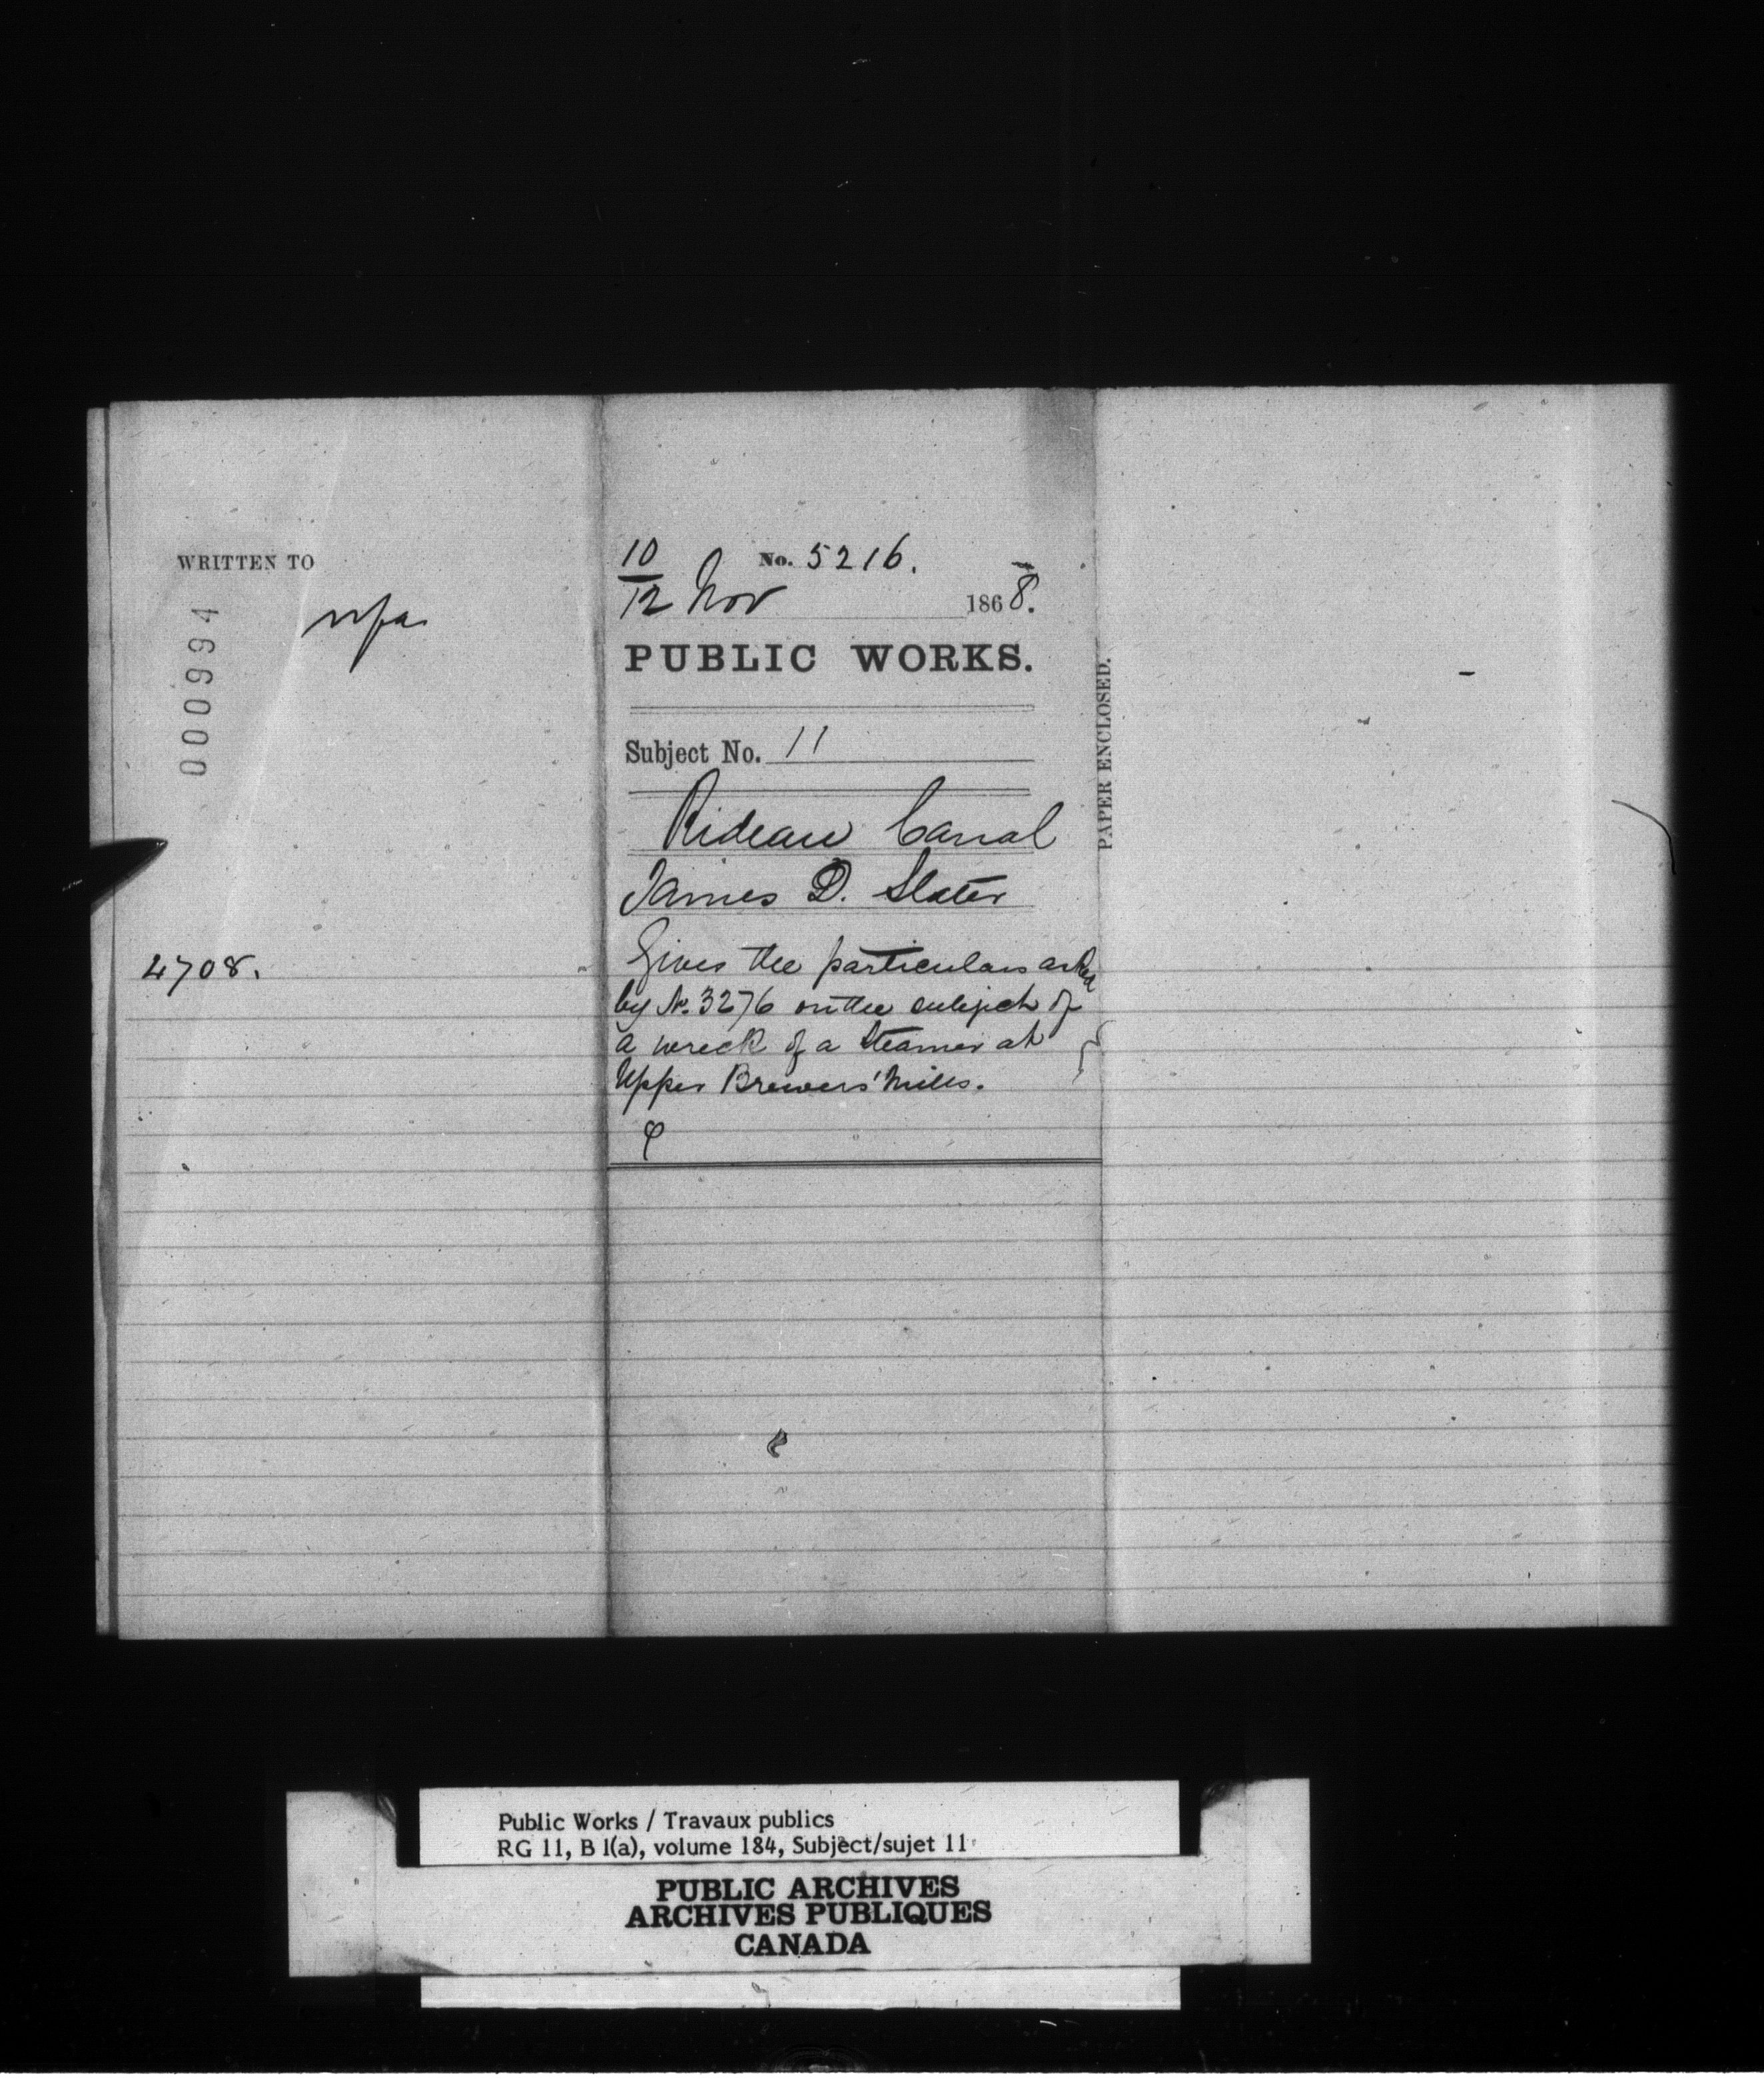 WRITTEN TO
000994
4708.
10
12 Nov
No. 5216.
1868.
PUBLIC WORKS.
Subject No. 11
Rideau Canal
James D. Slater
Gives the particulars asked
by No. 3276 on the subject of
a wreck of a Steamer at
Upper Brewers' Mills.
PAPER ENCLOSED.
Public Works / Travaux publics
RG 11, B 1(a), volume 184, Subject/sujet 11
PUBLIC ARCHIVES
ARCHIVES PUBLIQUES
CANADA